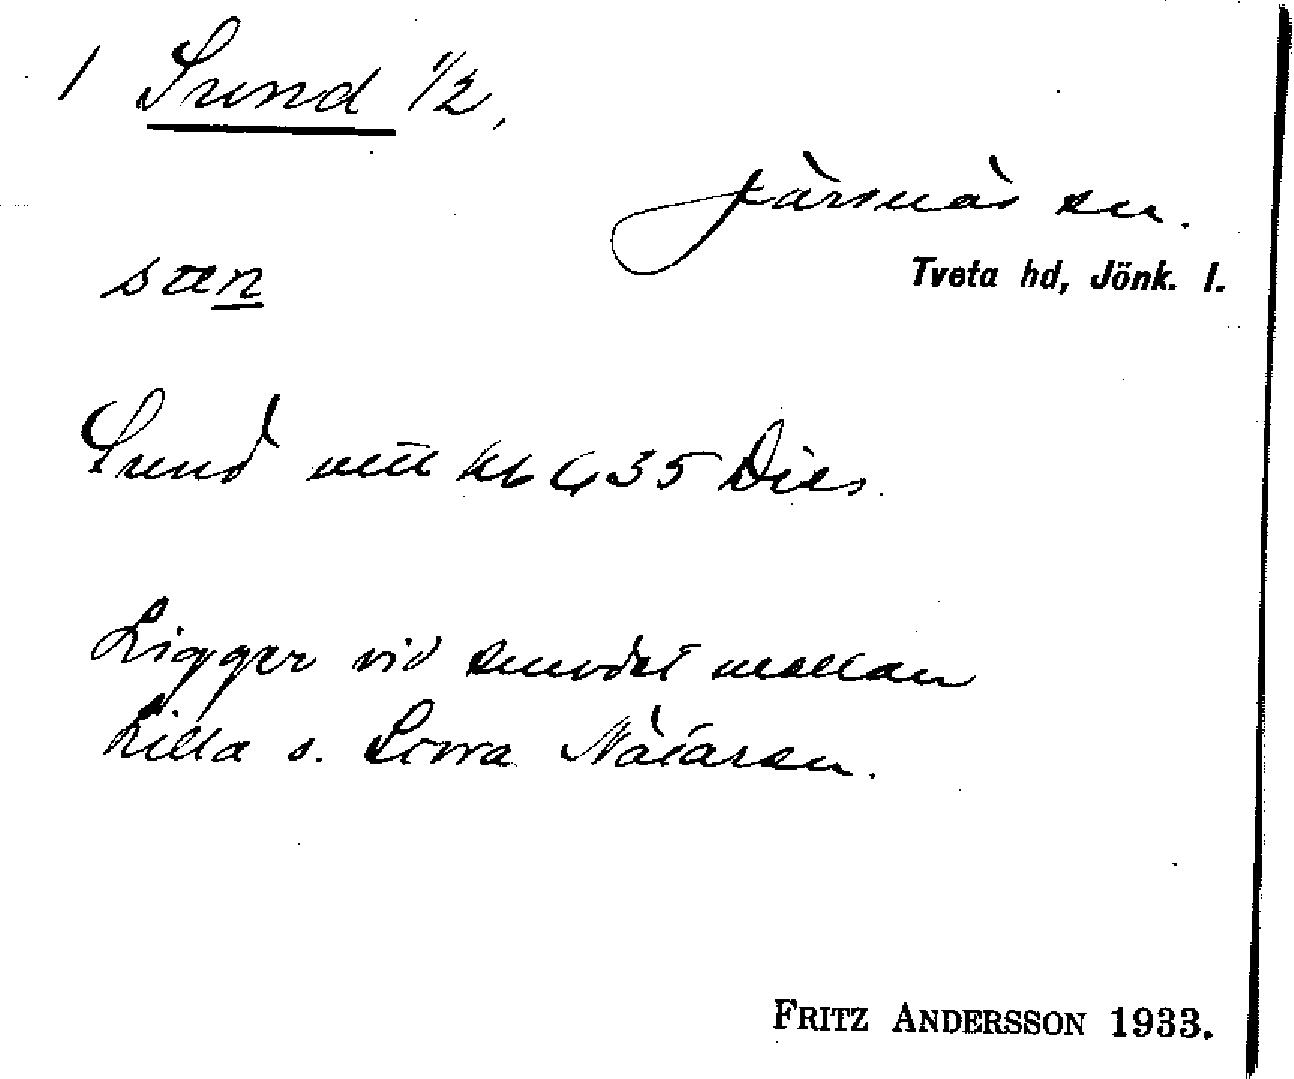 1 Sund 1/2,
Järsnäs sn.
Tveta hd, Jönk. l.
sœn
Sund
Ligger vid sundet mellan
Lilla o. Stora Nätaren.
FRITZ ANDERSSON 1933.